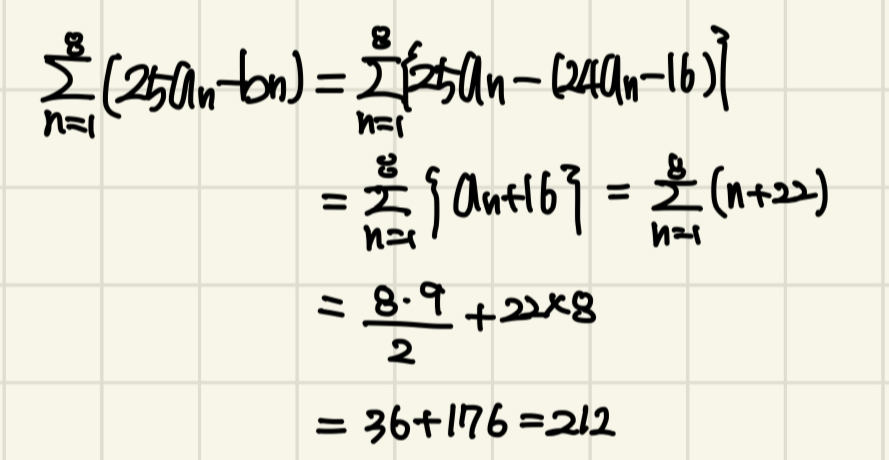 \sum_{n=1}^{8}(25a_n-b_n)=\sum_{n=1}^{8}\{25a_n-(24a_n-16)\}
=\sum_{n=1}^{8}\{a_n+16\}=\sum_{n=1}^{8}(n+22)
=\frac{8·9}{2}+22×8
=36+176=212